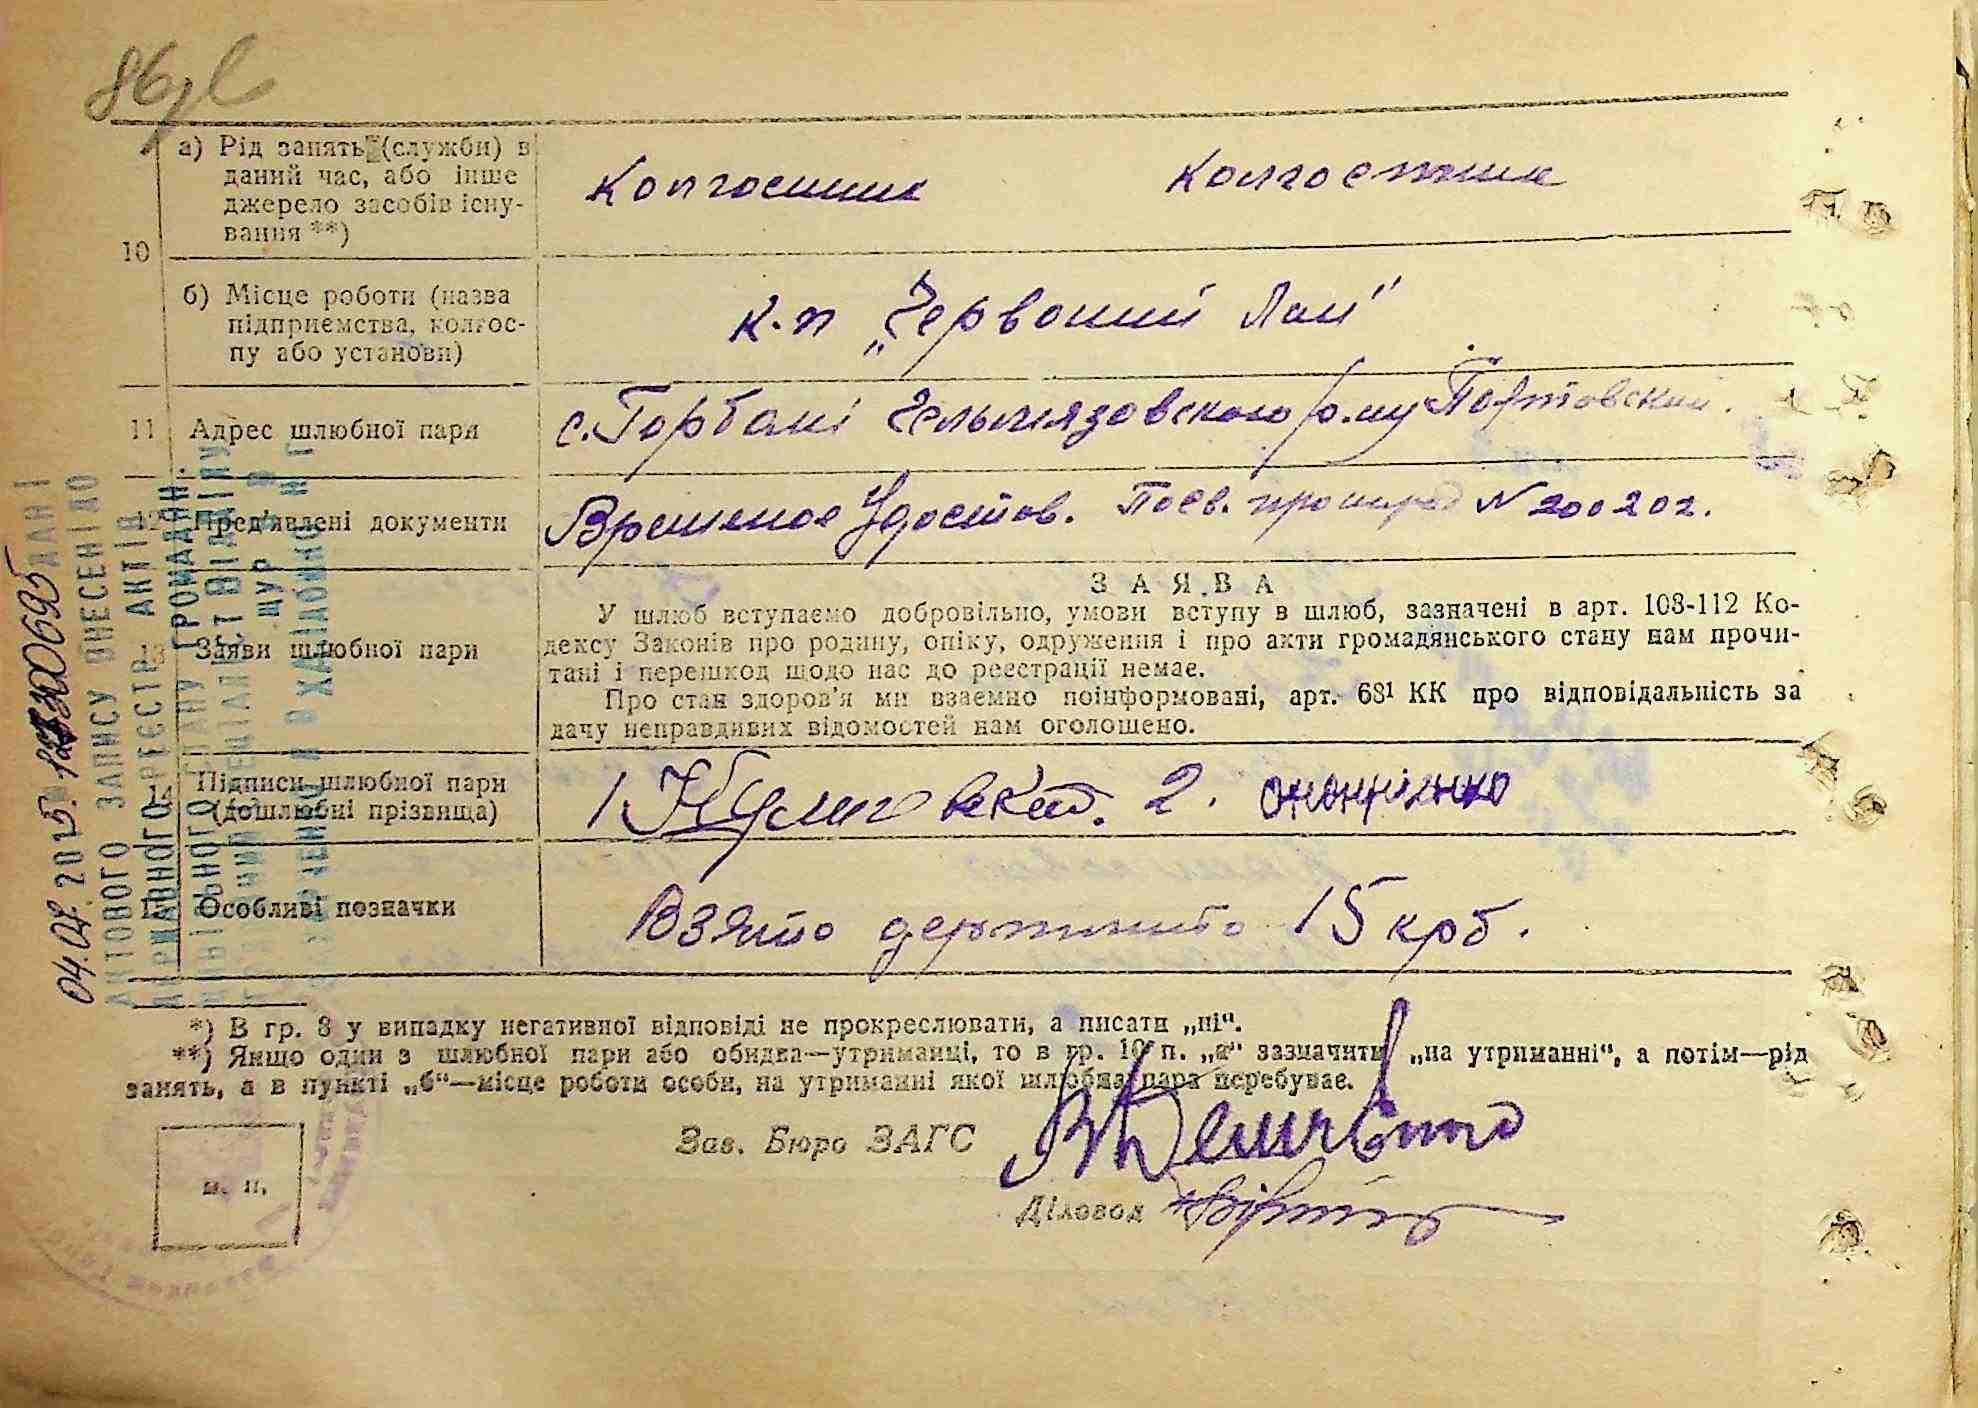 86
а) Рід занять (служби) в
даний час, або інше
джерело засобів існу-
вання **)
10
Колгоспник Колгоспник
б) Місце роботи (назва
підприємства, колгос-
пу або установи)
к-п „Червоний Лан"
11 Адрес шлюбної пари
с. Горбані Гельмязовского р-ну Полтовский.
12 Пред'явлені документи
Временое Удостов. Посв. про N 200202.
13 Заяви шлюбної пари
ЗАЯВА
У шлюб вступаємо добровільно, умови вступу в шлюб, зазначені в арт. 108-112 Ко-
дексу Законів про родину, опіку, одруження і про акти громадянського стану нам прочи-
тані і перешкод щодо нас до реєстрації немає.
Про стан здоров'я ми взаємно поінформовані, арт. 68¹ КК про відповідальність за
дачу неправдивих відомостей нам оголошено.
14 Підписи шлюбної пари
(дошлюбні прізвища)
1. 2.
Особливі позначки
Взято держмито 15 крб.
*) В гр. 8 у випадку негативної відповіді не прокреслювати, а писати „ні".
**) Якщо один з шлюбної пари або обидва—утриманці, то в гр. 10 п. „а" зазначити „на утриманні", а потім—рід
занять, а в пункті „б"—місце роботи особи, на утриманні якої шлюбна пара перебуває.
Зав. Бюро ЗАГС
м. п.
Діловод
ДАНІ
АКТОВОГО ЗАПИСУ ВНЕСЕНІ ДО
ДЕРЖАВНОГО РЕЄСТР АКТІВ
ЦИВІЛЬНОГО СТАНУ ГРОМАДЯН.